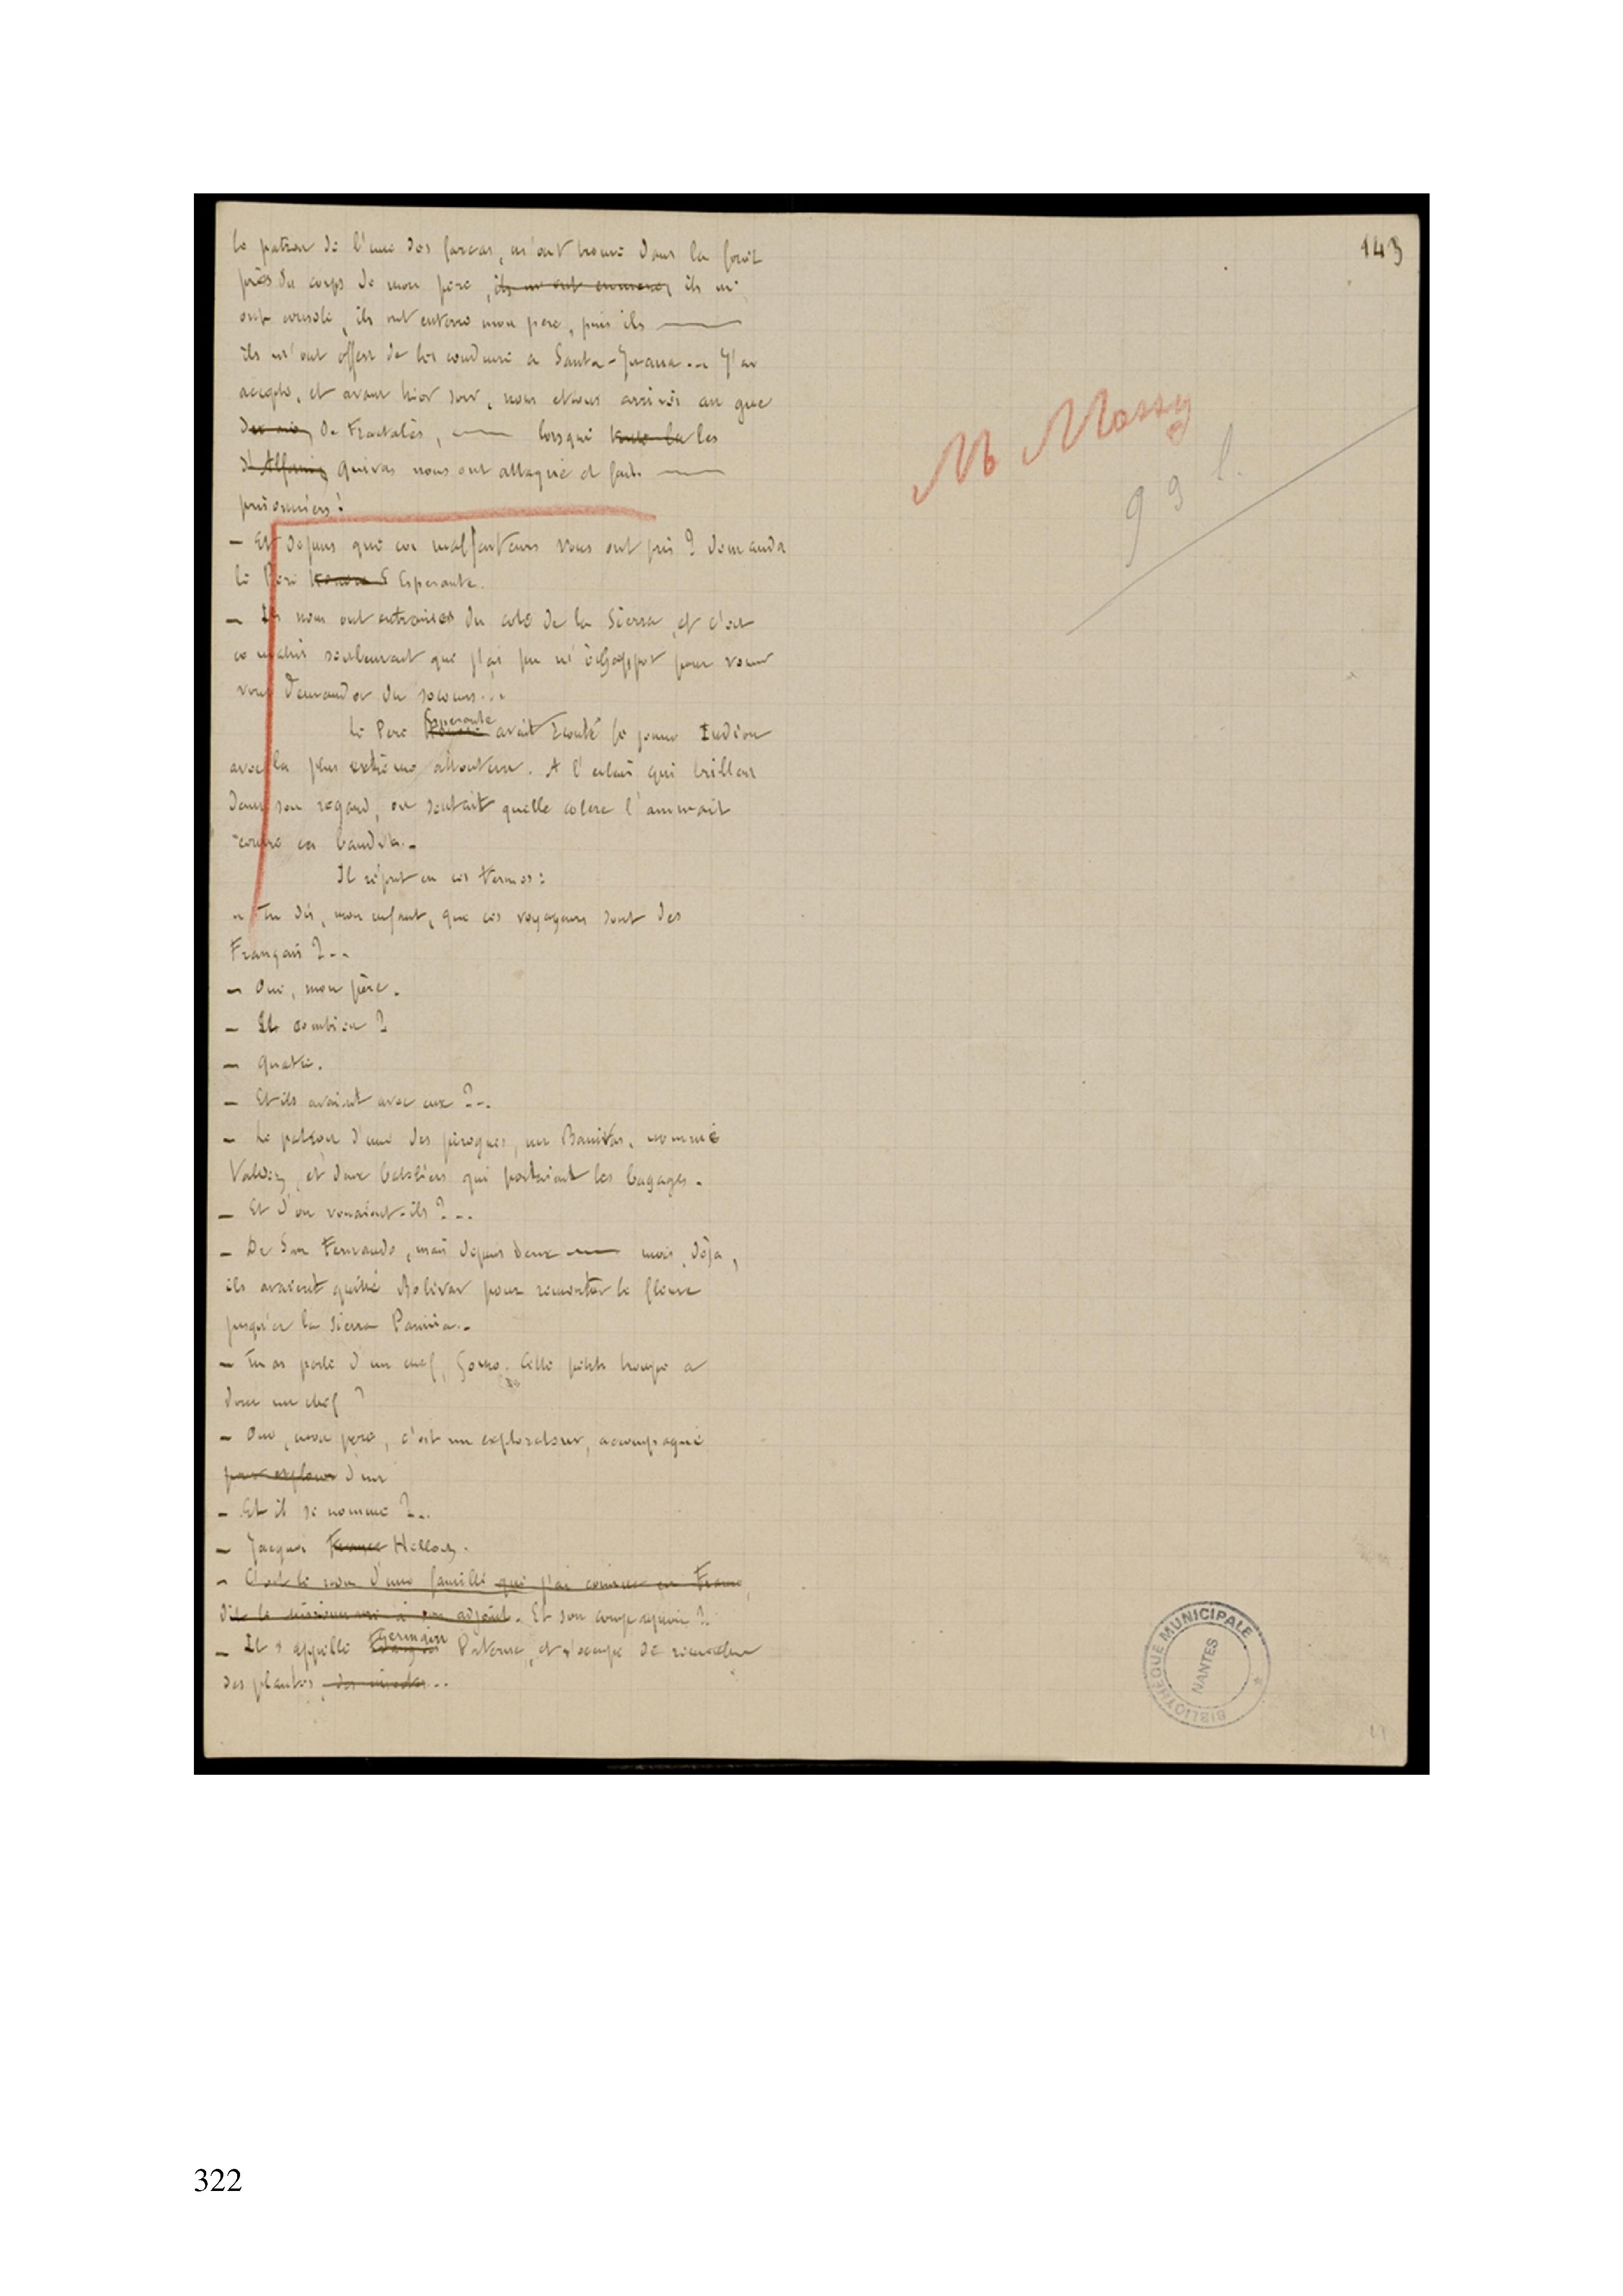 143
le patron de l'une des farcas, m'ont trouvé dans la forêt
près du corps de mon père, ils m'ont emmené, ils m'
ont consolé, ils ont enterré mon père, puis ils ———
ils m'ont offert de les conduire à Santa-Juana... J'ai
accepté, et avant hier soir, nous étions arrivés au gué
de Frascalès, ——— lorsque les
d'Alfaniz Quivas nous ont attaqué et faits ———
prisonniers !
M Massy
99 l.
— Et depuis que ces malfaiteurs vous ont pris ? demanda
le Père Esperante.
— Ils nous ont entrainés du coté de la Sierra, et c'est
ce matin seulement que j'ai pu m'échapper pour venir
vous demander du secours...
Le Père Esperante avait écouté le jeune Indien
avec la plus extrême attention. A l'éclair qui brillait
dans son regard, on sentait quelle colère l'animait
contre ces bandits..
Il reprit en ces termes :
« Tu dis, mon enfant, que ces voyageurs sont des
Français ?..
— Oui, mon père.
— Et combien ?
— Quatre.
— Et ils avaient avec eux ?..
— Le patron d'une des pirogues, un Banivas, nommé
Valdez, et deux bateliers qui portaient les bagages.
— Et d'où venaient-ils ?...
— De San Fernando, mais depuis deux —— mois déjà,
ils avaient quitté Bolivar pour remonter le fleuve
jusqu'à la sierra Parima..
— Tu as parlé d'un chef, Gomo. Cette petite troupe a
donc un chef ?
— Oui, mon père, c'est un explorateur, accompagné
pour explorer d'un
— Et il se nomme ?..
— Jacques France Helloch.
— C'est le nom d'une famille que j'ai connue en France,
dit le missionnaire à son adjoint. Et son compagnon ?
— Il s'appelle Germain Paterne, et s'occupe de recueillir
des plantes
BIBLIOTHÈQUE MUNICIPALE
NANTES
322